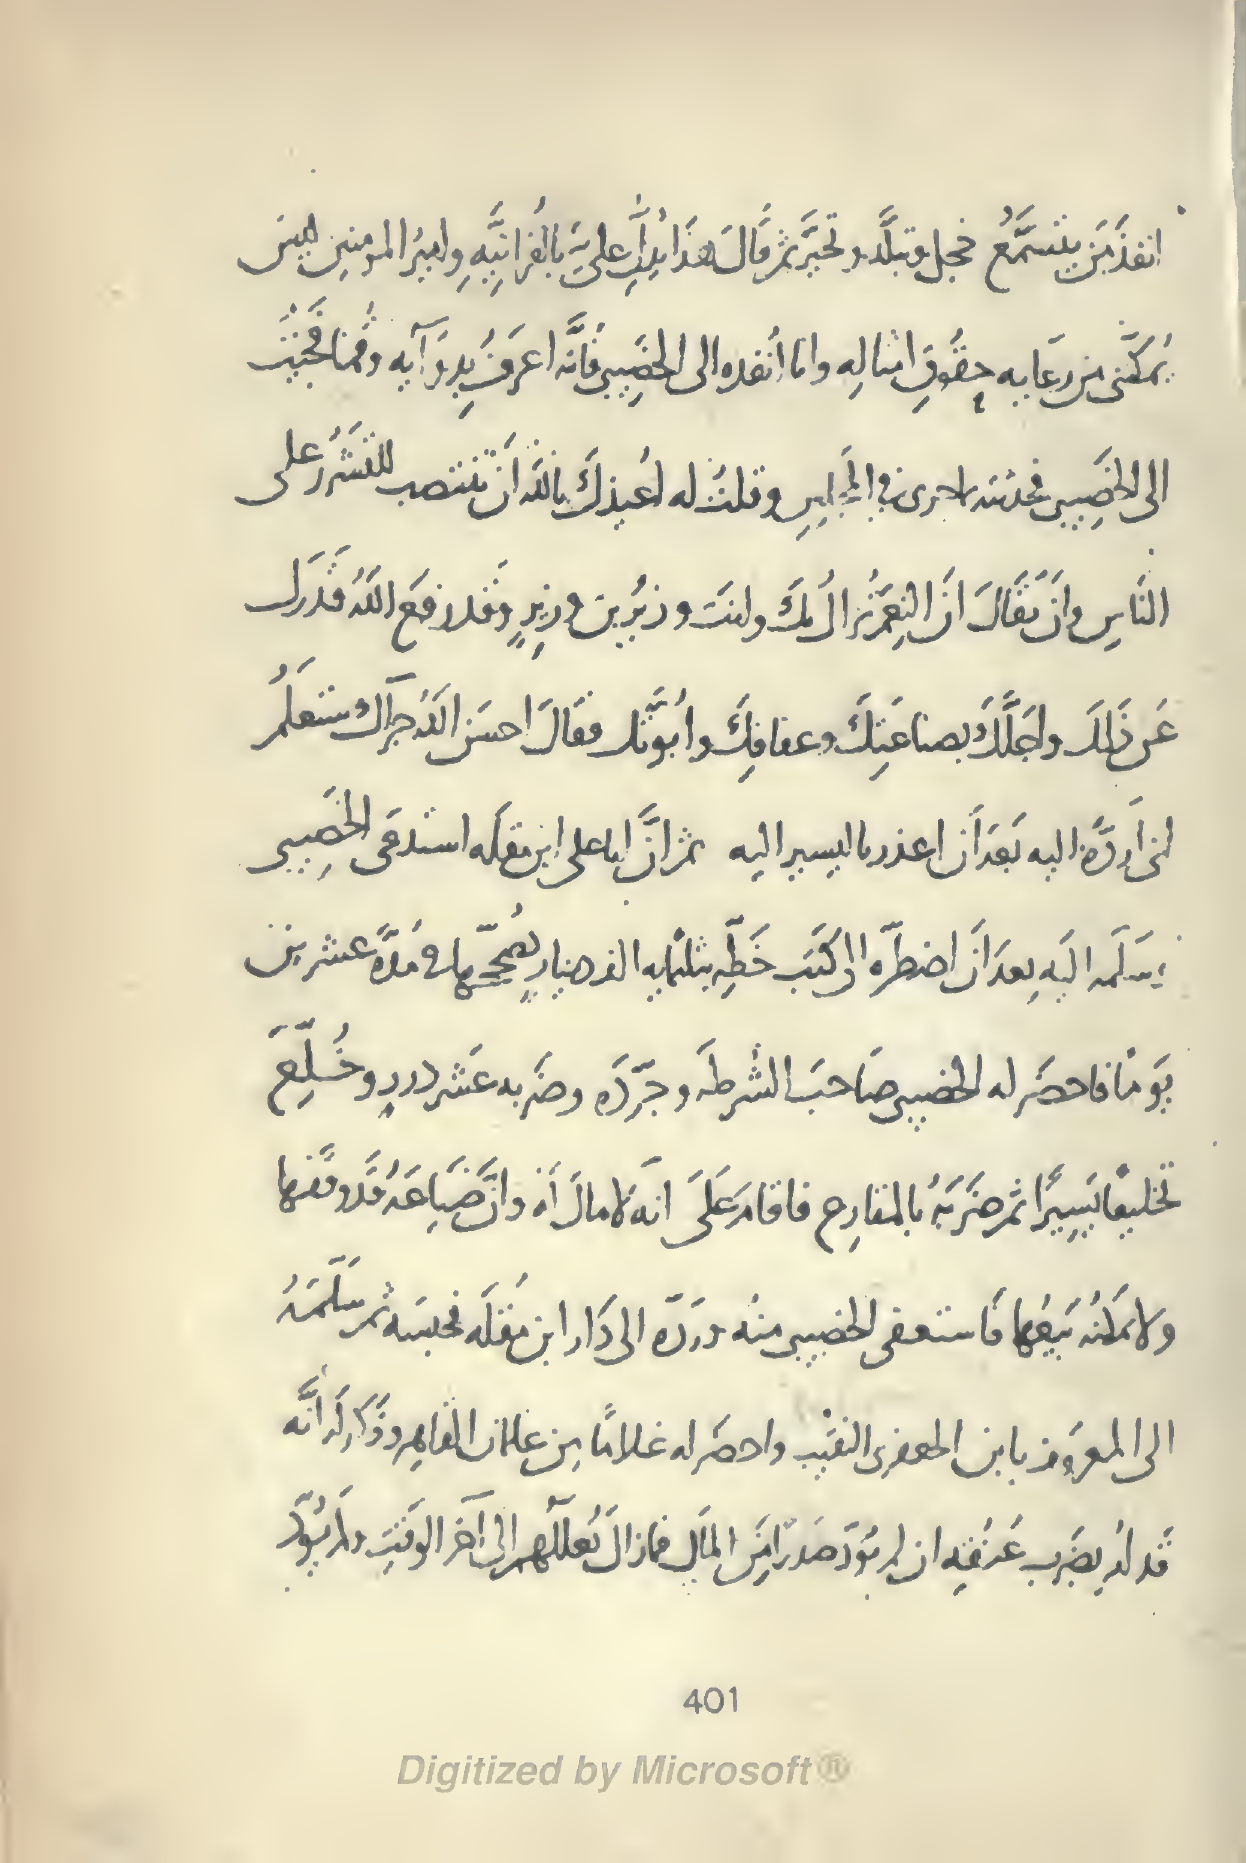 انفذ من يتسمّع فخجل وتبلّد وتحيّر ثم قال هذا يدلّ عليّ بالفرانيّه وامير المومنين ليس
يُمكّنني من رعايه حقُوق امثاله وانا اُنفده الى الخصيبي فانّه اعرف بدوآيه وقُمنا فجيت
الى الخصيبي فحدثته بما جرى في المجلس وقلتُ له اُعيذك بالله ان تنتصب للتشرّر على
الناس وان يُقال انّ النعم تُزال بك وانت وزير بن وزير وقد رفع الله قدرك
عن ذلك واجلّك بصناعتك وعفافك واُبوّتك فقال احسن الله جزآك وستعلم
انى اردّه اليه بعد ان اعذر باليسير اليه ثم انّ ابا على ابن مقله استدعى الخصيبي
وسلمه اليه بعد ان اضطرّه الى كتب خطّه بثلثمايه الف دينار يُصحّحها في مُدّة عشرين
يومًا فاحضر له الخصيبي صاحب الشرطه وجرّده وضربه عشر درر وخُلّع
تخليعًا يسيرًا ثم ضربهُ بالمقارع فاقام على انه لا مال له وانّ ضياعهُ قد وقفها
ولا يمكنُه بيعُها فاستعفى الخصيبي منه وردّه الى دار ابن مُقله فحبسه ثم سلّمهُ
الى المعروف بابن الجعفرى النقيب واحضر له غلامًا من غلمان القاهر وذكر له انّه
قد اُمر بضرب عُنقه ان لم يودّ صدرًا من المال فما زال يُعللّهم الى آخر الوقت ولم يُودّ
401
Digitized by Microsoft®